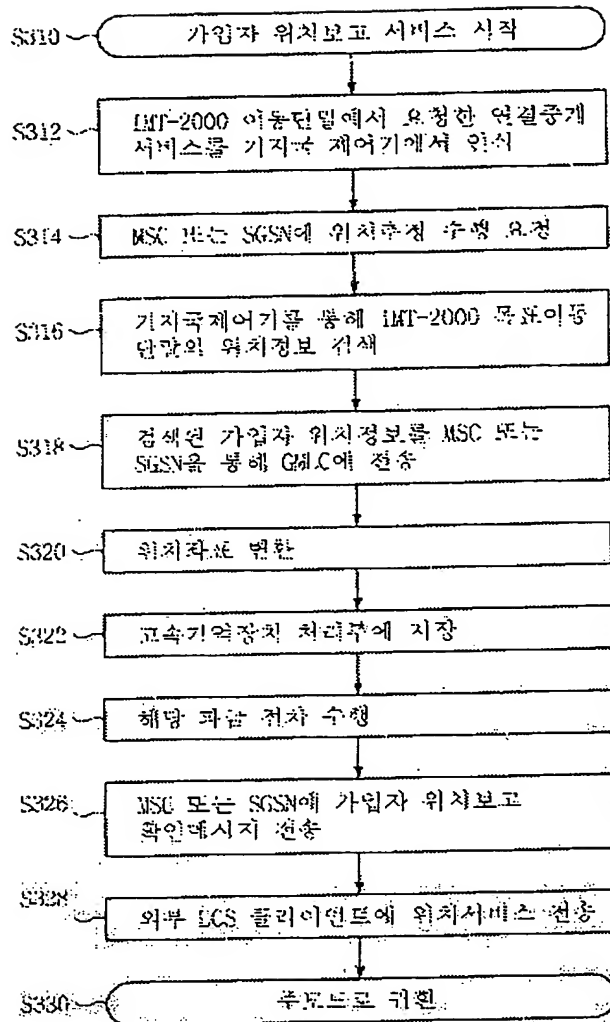 S310
가입자 위치보고 서비스 시작
S312
IMT-2000 이동단말에서 요청한 연결중계
서비스를 기지국 제어기에서 인식
S314
MSC 또는 SGSN에 위치추정 수행 요청
S316
기지국제어기를 통해 IMT-2000 목표이동
단말의 위치정보 검색
S318
검색된 가입자 위치정보를 MSC 또는
SGSN을 통해 GMLC에 전송
S320
위치좌표 변환
S322
고속기억장치 처리부에 저장
S324
해당 과금 절차 수행
S326
MSC 또는 SGSN에 가입자 위치보고
확인메시지 전송
S328
외부 LCS 클라이언트에 위치서비스 전송
S330
주모드로 귀환